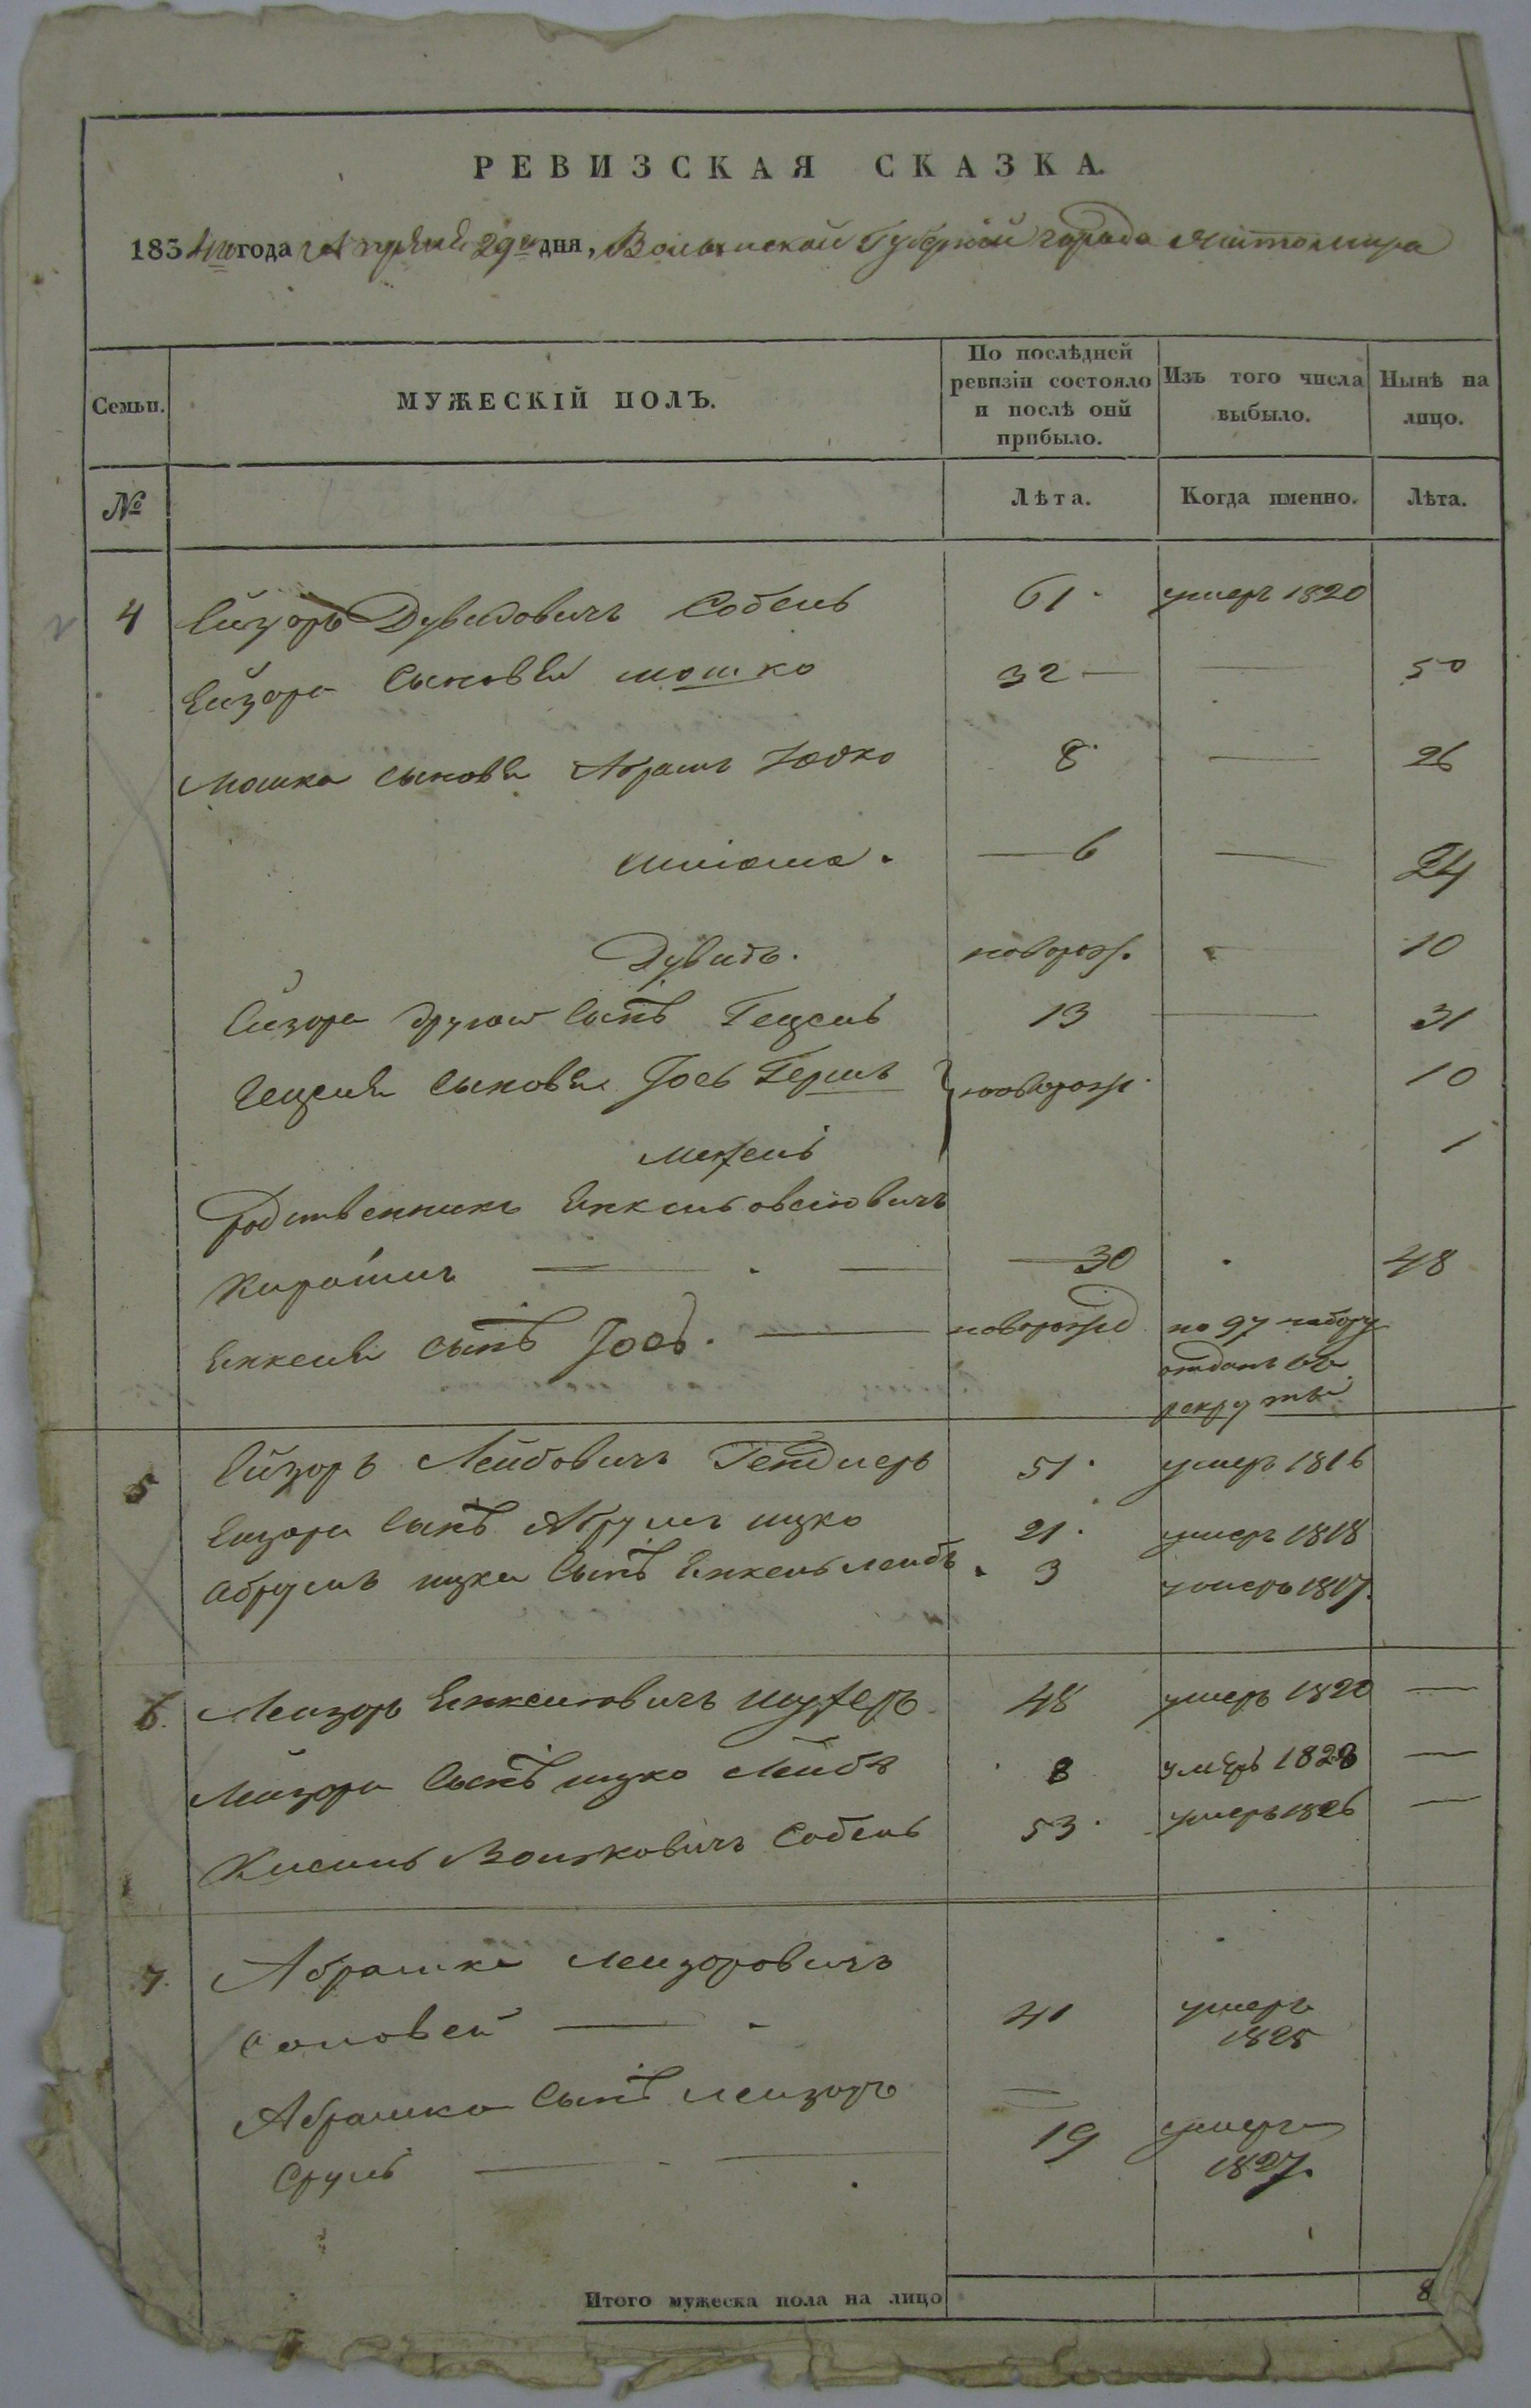 РЕВИЗСКАЯ СКАЗКА.
1834го года Апреля 29го дня, Волынской Губернии города Житомира
Семьи. МУЖЕСКІЙ ПОЛЪ. По послѣдней ревизіи состояло и послѣ онй прибыло. Изъ того числа выбыло. Нынѣ на лицо.
№ Лѣта. Когда именно. Лѣта.
4 Ейзоръ Дувидовичъ Собель 61 умеръ 1820
Ейзора сыновья Мошко 32 — — 50
Мошка сыновья Абрамъ Юдко 8 — 26
— 6 — 24
Дувидъ. новорож. — 10
Ейзора другой сынъ Гецель 13 — 31
Гецеля сыновья Іось Гершъ новорож. 10
1
Родственникъ Енкель Овсіовичъ
— — — 30 48
Енкеля сынъ Іось. — новорожд по 97 набору
отданъ въ
рекруты
5 Ейзоръ Лейбовичъ Гендлеръ 51 умеръ 1816
Ейзора сынъ Абрумъ Ицко 21 умеръ 1818
Абрумъ Ицка сынъ Енкель Лейбъ 3 умеръ 1817.
6. Лейзоръ Енкелювичъ 48 умеръ 1820 —
Лейзора сынъ Ицко Лейбъ 8 умеръ 1828 —
Волковичъ Собель 53 умеръ 1826 —
7. Абрашка Лейзоровичъ
Соловей — 41 умеръ
1825
Абрашка сынъ Лейзоръ
Сруль — — 19 умеръ
1827.
Итого мужеска пола на лицо 8